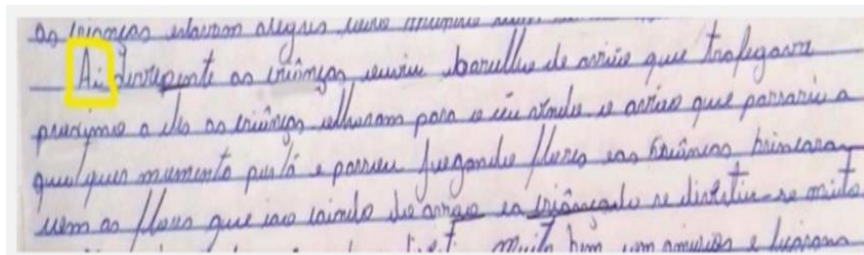 as crianças estavam alegres
Ai derrepente as crianças ouviu barulho de avião que trafegava
proximo a eles as crianças olharam para o céu vindo o avião que passaria a
qualquer momento por lá e passou jogando flores e as crianças brincaram
com as flores que iao caindo do aviao e a criançada se divertiu-se muito
muito bem com amigos e